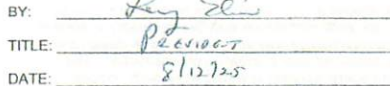 BY:
TITLE: President
DATE: 8/12/25